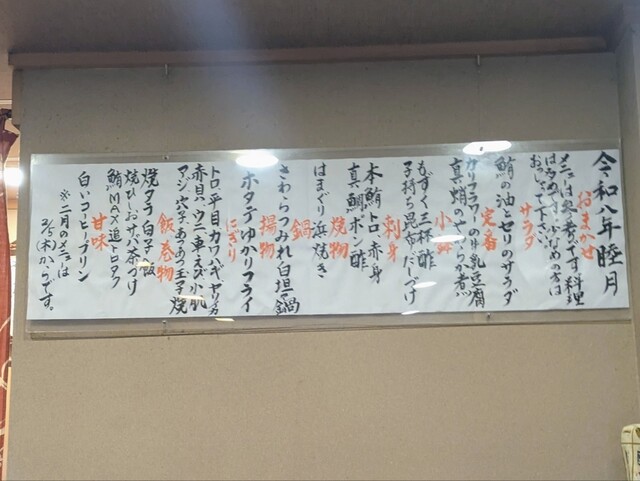 令和八年睦月
おまかせ
メニューは参考です料理
おっしゃって下さい。
サラダ
鮪の油とセリのサラダ
定番
カリフラワーの牛乳豆腐
真蛸のやわらか煮
小鉢
もずく三杯酢
子持ち昆布だしづけ
刺身
本鮪トロ赤身
真鯛ポン酢
焼物
はまぐり浜焼き
鍋
さわらつみれ白垣鍋
揚物
ホタテゆかりフライ
にぎり
トロ平目カワハギヤリイカ
赤貝ウニ車えび小肌
アジ穴子あつあつ玉子焼
飯巻物
焼タラ白子飯
焼ひらおサバ茶づけ
鮪MAX追トロタク
甘味
白いコーヒープリン
※二月のメニューは
2/5(木)からです。